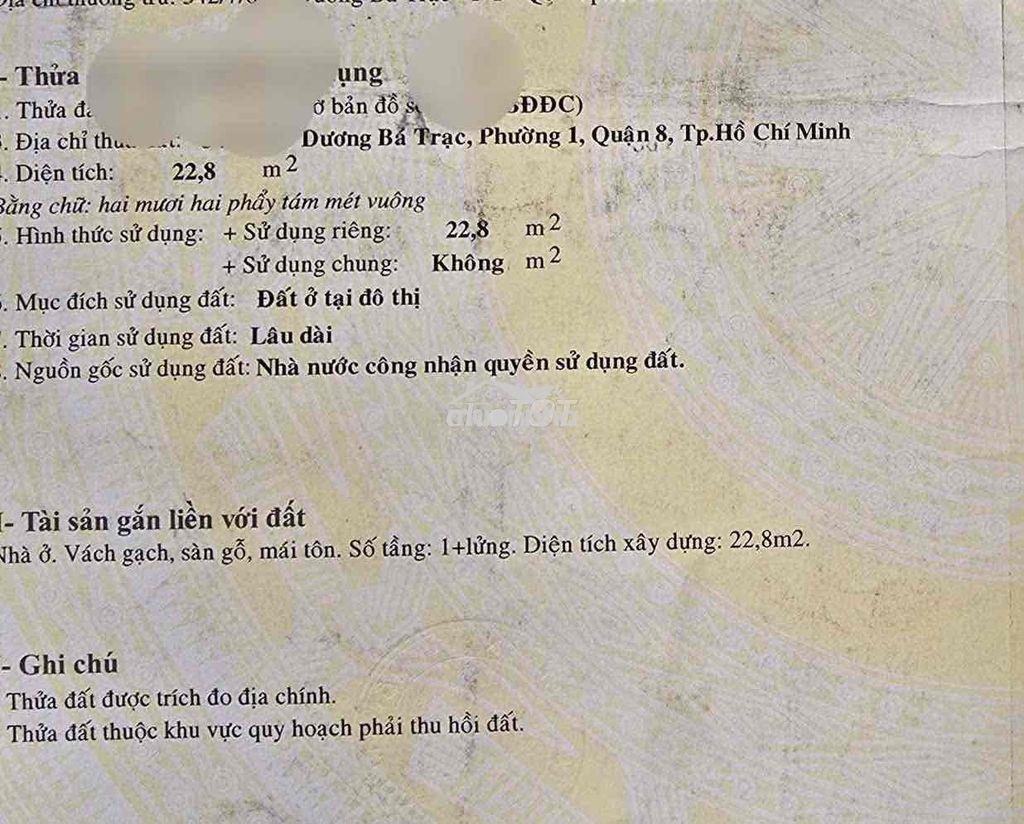 - Thửa ụng
. Thửa đ ờ bản đồ s ĐĐC)
. Địa chỉ thử Dương Bá Trạc, Phường 1, Quận 8, Tp.Hồ Chí Minh
. Diện tích: 22,8 m2
Bằng chữ: hai mươi hai phẩy tám mét vuông
. Hình thức sử dụng: + Sử dụng riêng: 22,8 m2
+ Sử dụng chung: Không m2
. Mục đích sử dụng đất: Đất ở tại đô thị
. Thời gian sử dụng đất: Lâu dài
. Nguồn gốc sử dụng đất: Nhà nước công nhận quyền sử dụng đất.
choTỐT
I- Tài sản gắn liền với đất
Nhà ở. Vách gạch, sàn gỗ, mái tôn. Số tầng: 1+lửng. Diện tích xây dựng: 22,8m2.
- Ghi chú
Thửa đất được trích đo địa chính.
Thửa đất thuộc khu vực quy hoạch phải thu hồi đất.